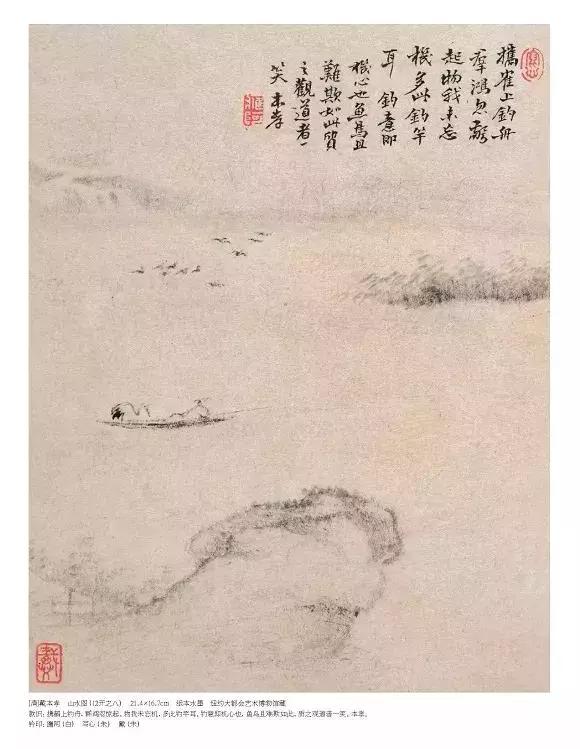 攜隺上釣舟
羣鴻忽驚
起物我未忘
機多此釣竿
耳 釣意即
機心也魚鳥且
難欺如此質
之觀道者一
笑 本孝
[清]戴本孝 山水图 1(12开之八) 21.4×16.7cm 纸本水墨 纽约大都会艺术博物馆藏
款识：携鹤上钓舟，群鸿忽惊起。物我未忘机，多此钓竿耳。钓意即机心也，鱼鸟且难欺如此，质之观道者一笑。本孝。
钤印：鹰阿(白) 写心(朱) 戴(朱)